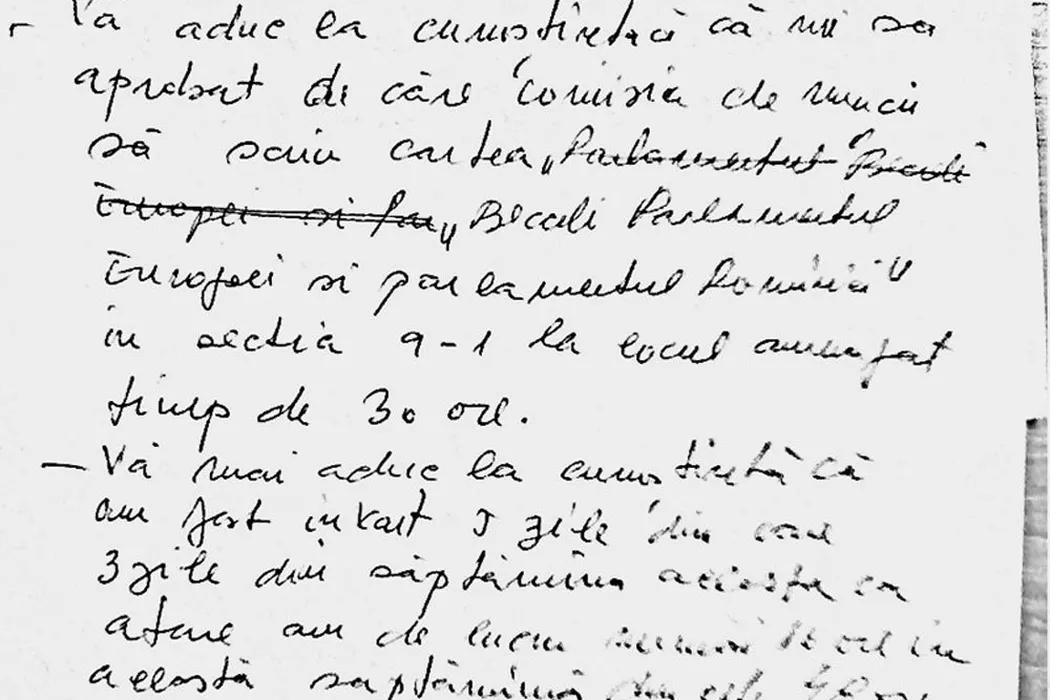 - Vă aduc la cunoștință că mi sa
aprobat de căre Comisia de muncii
să scriu cartea „Parlamentul Becali
Europei si Ru „Becali Parlamentul
Europei si parlamentul României"
in sectia 9-1 la locul amenajat
timp de 30 ore.
- Vă mai aduc la cunoștință că
am fost invoit 5 zile din care
3 zile din săptămîna aceasta ca
atare am de lucru numai 16 ore in
această saptămînă din cele